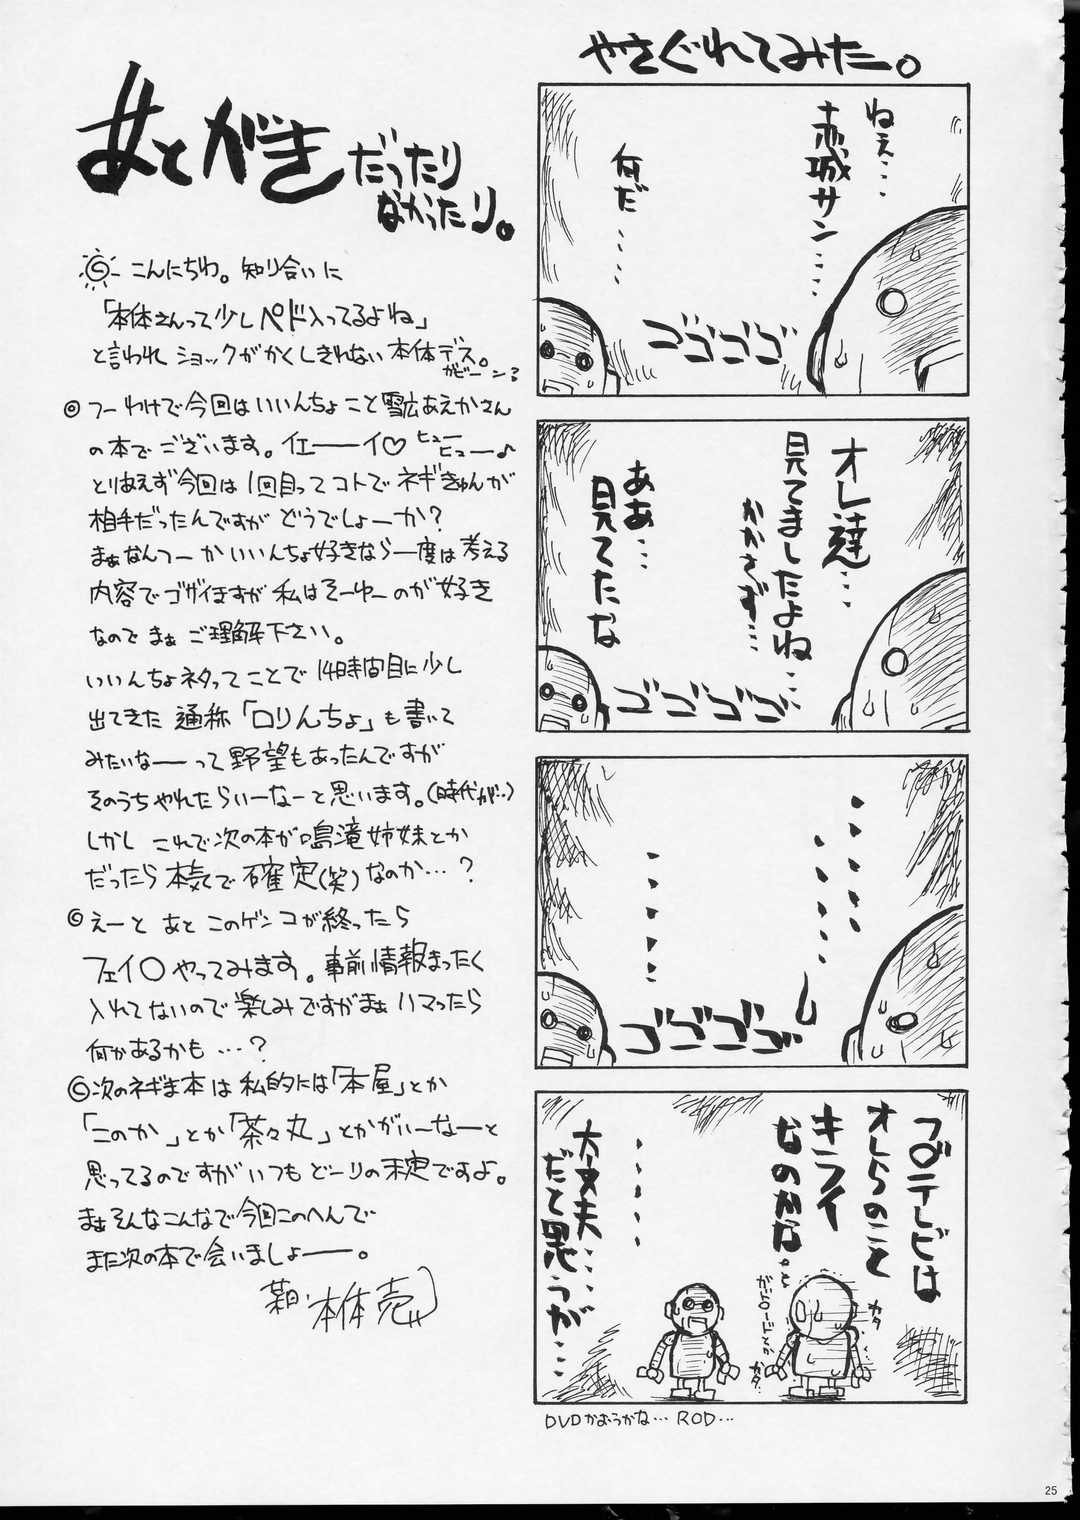 あとがき だったり
なかったり。
こんにちわ。知り合いに
「本体さんって少しペド入ってるよね」
と言われ ショックがかくしきれない本体デス。
ガビーン?
つーわけで今回はいいんちょこと雪広あえかさん
の本でございます。イエーーイ♡ ヒュー
ヒュー♪
とりあえず今回は1回目ってコトでネギきゅんが
相手だったんですが どうでしょーか?
まぁなんつーか いいんちょ好きなら一度は考える
内容でゴザイますが 私はそーゆーのが好き
なので まぁ ご理解下さい。
いいんちょネタってことで 14時間目に少し
出てきた 通称「ロリんちょ」も書いて
みたいなーーって野望もあったんですが
そのうちやれたらいーなーと思います。(時代が…)
しかし これで次の本が鳴滝姉妹とか
だったら 本気で 確定(笑)なのか…?
えーと あと このゲンコが終ったら
フェイ○ やってみます。事前情報まったく
入れてないので楽しみですがまぁ ハマったら
何かあるかも …?
次のネギま本は 私的には「本屋」とか
「このか」とか「茶々丸」とかがいーなーと
思ってるのですが いつもどーりの未定ですよ。
まぁそんなこんなで 今回このへんで
また次の本で会いましょーー。
本体売
やさぐれてみた。
ねえ…
赤城サン……
何だ……
ゴゴゴゴゴ
オレ達…
見てましたよね
かかさず…
ああ…
見てたな
ゴゴゴゴゴ
……
……
ゴゴゴゴゴ
フ゜テレビは
オレらのこと
キライ
なのかな…
カタ
カタ
……
大丈夫…
だと思うが…
DVDかおうかな… ROD…
25